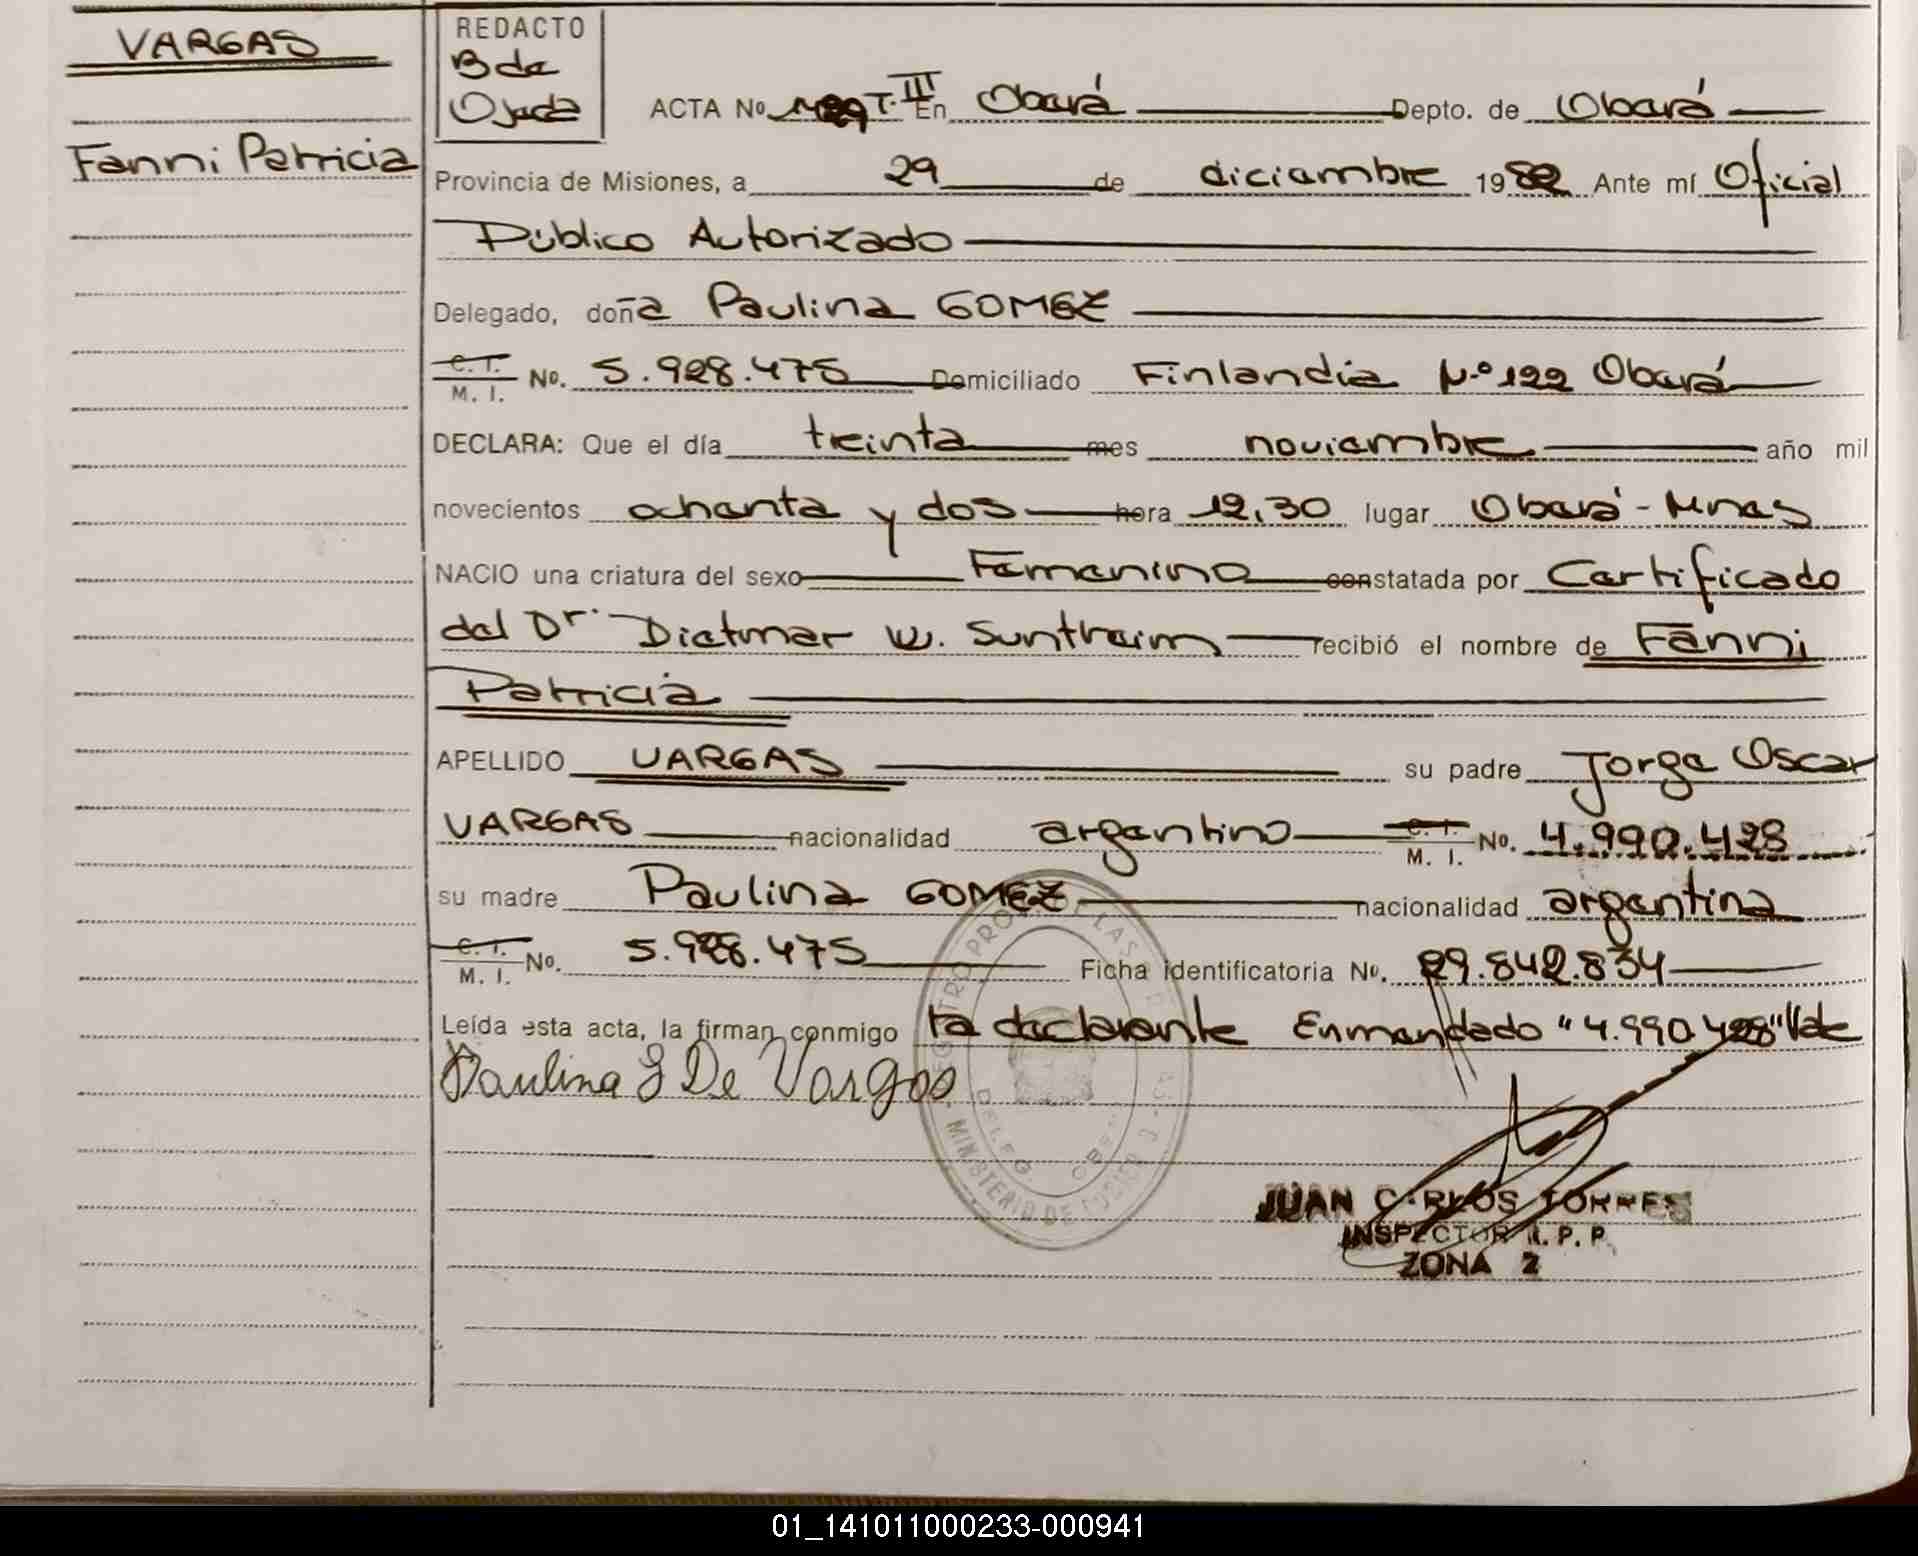 VARGAS
Fanni Patricia
REDACTO
B de
Ojeda
ACTA No. T. III En Oberá Depto. de Oberá
Provincia de Misiones, a 29 de diciembre 1982 Ante mí Oficial
Público Autorizado
Delegado, doña Paulina GOMEZ
C. I. M. I. No. 5.928.475 Domiciliado Finlandia N.º 122 Oberá
DECLARA: Que el día treinta mes noviembre año mil
novecientos ochenta y dos hora 12,30 lugar Oberá - Mnes
NACIO una criatura del sexo Femenino constatada por Certificado
del Dr. Dietmar W. Suntheim recibió el nombre de Fanni
Patricia
APELLIDO VARGAS su padre Jorge Oscar
VARGAS nacionalidad argentino C. I. M. I. No. 4.990.428
su madre Paulina GOMEZ nacionalidad argentina
C. I. M. I. No. 5.928.475 Ficha identificatoria No. 29.842.834
Leída esta acta, la firman conmigo la declarante Enmendado "4.990.428" Vale
Paulina G De Vargas
MINISTERIO DE
DELEG.
JUAN CARLOS TORRES
INSPECTOR R. P. P.
ZONA 2
01_141011000233-000941